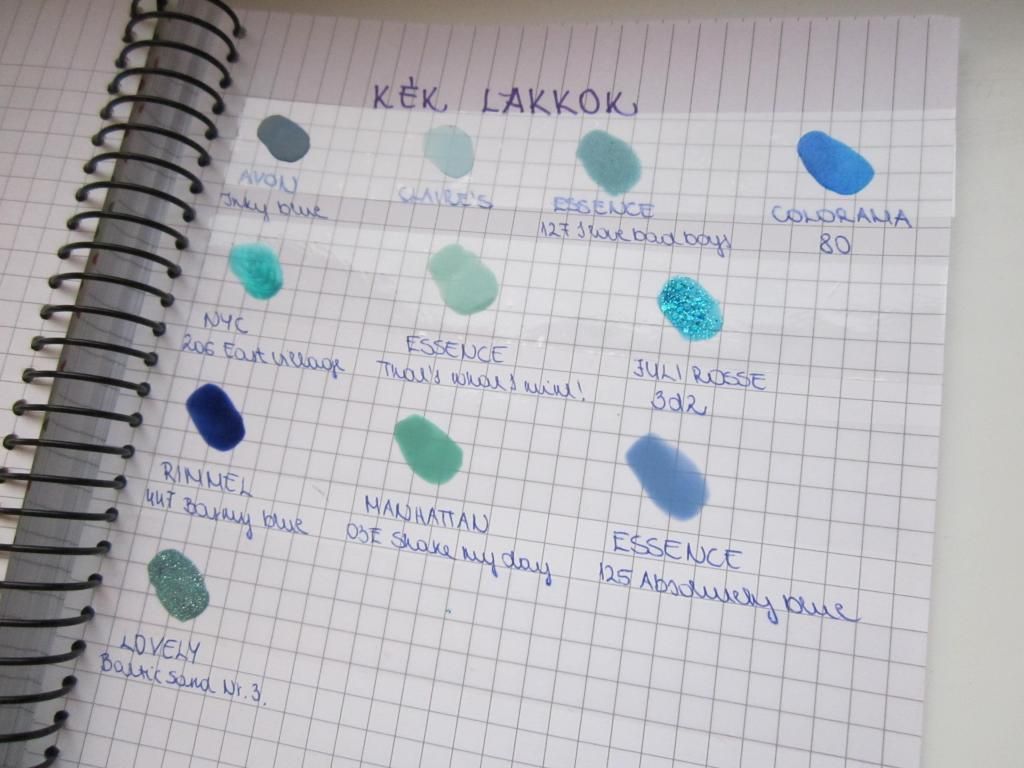 KÉK LAKKOK
AVON
Inky blue
CLAIRE'S
ESSENCE
127 I love bad boys
COLORAMA
80
NYC
206 East village
ESSENCE
That's what I mint!
JULI ROSSE
3d2
RIMMEL
447 Barmy blue
MANHATTAN
03E Shake my day
ESSENCE
125 Absolutely blue
LOVELY
Baltic sand Nr. 3.